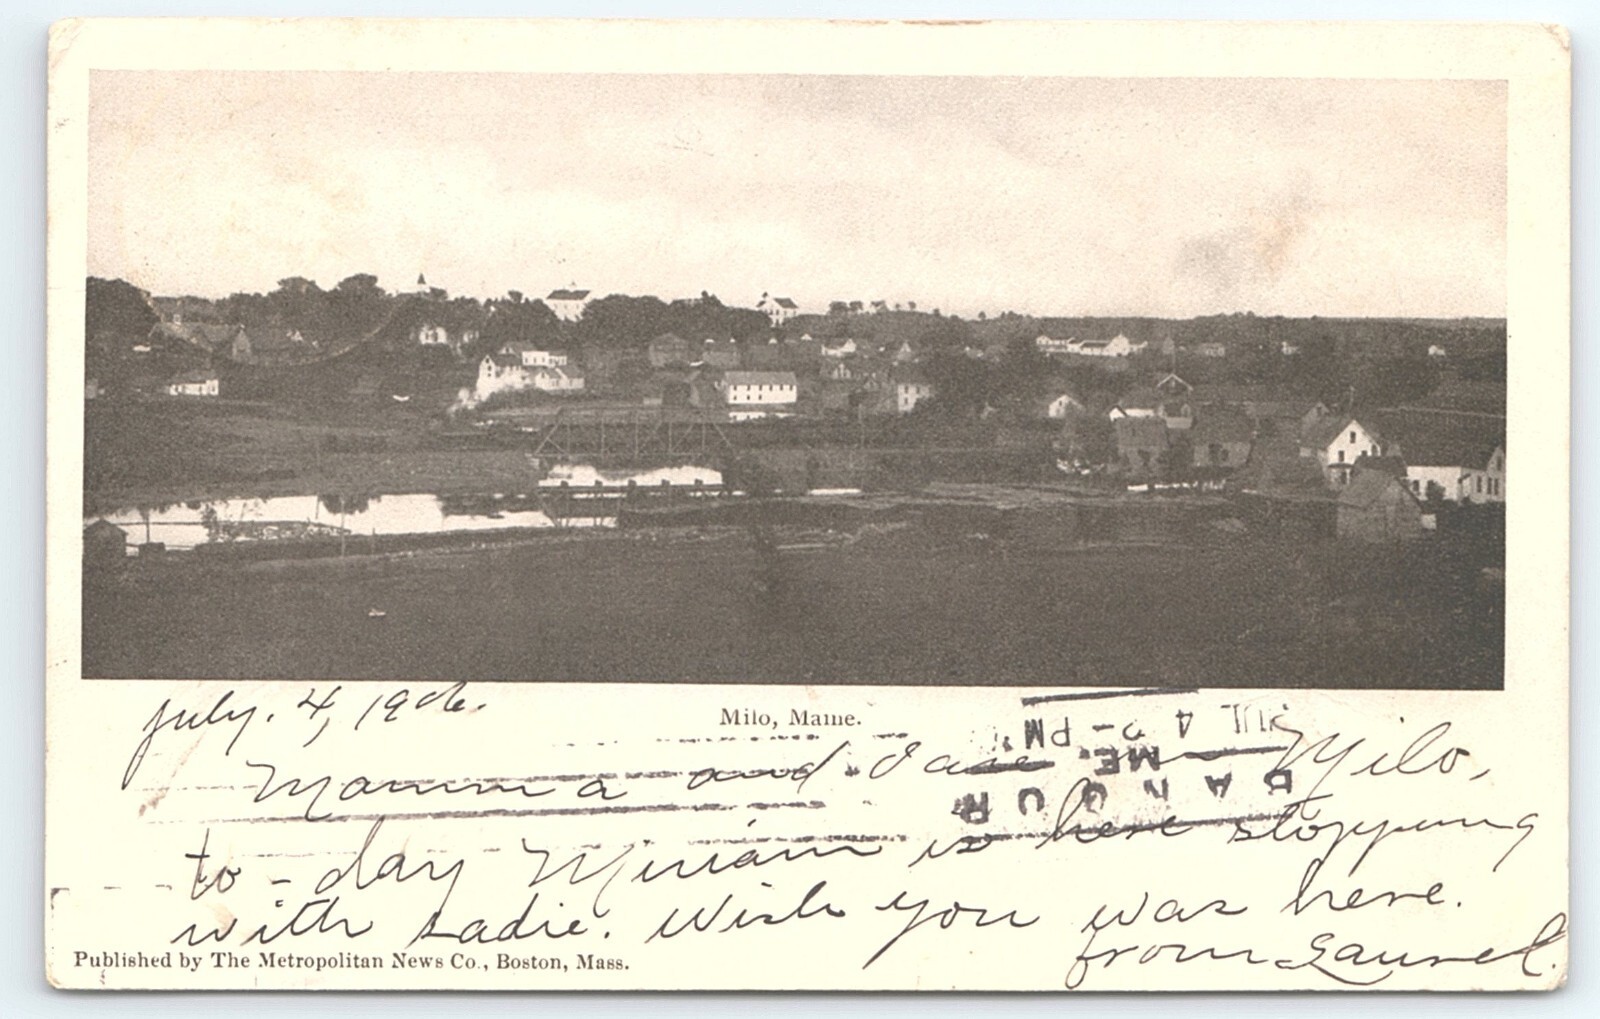 July. 4, 1906.
Milo, Maine.
JUL 4 - PM
BANGOR
ME.
Mamma and I are in Milo,
to-day Miriam is here stopping
with Sadie. Wish you was here.
from Laurel.
Published by The Metropolitan News Co., Boston, Mass.